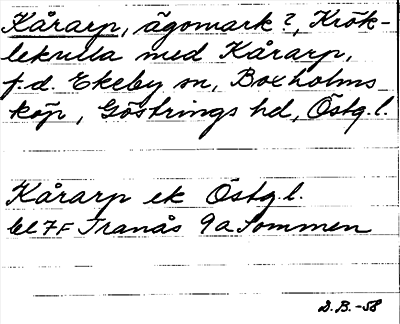 Kårarp, ägomark?, Krök-
lekulla med Kårarp,
f.d. Ekeby sn, Boxholms
köp, Göstrings hd, Östg.l.
Kårarp ek Östg.l.
bl 7F Tranås 9a Sommen
D.B.-58